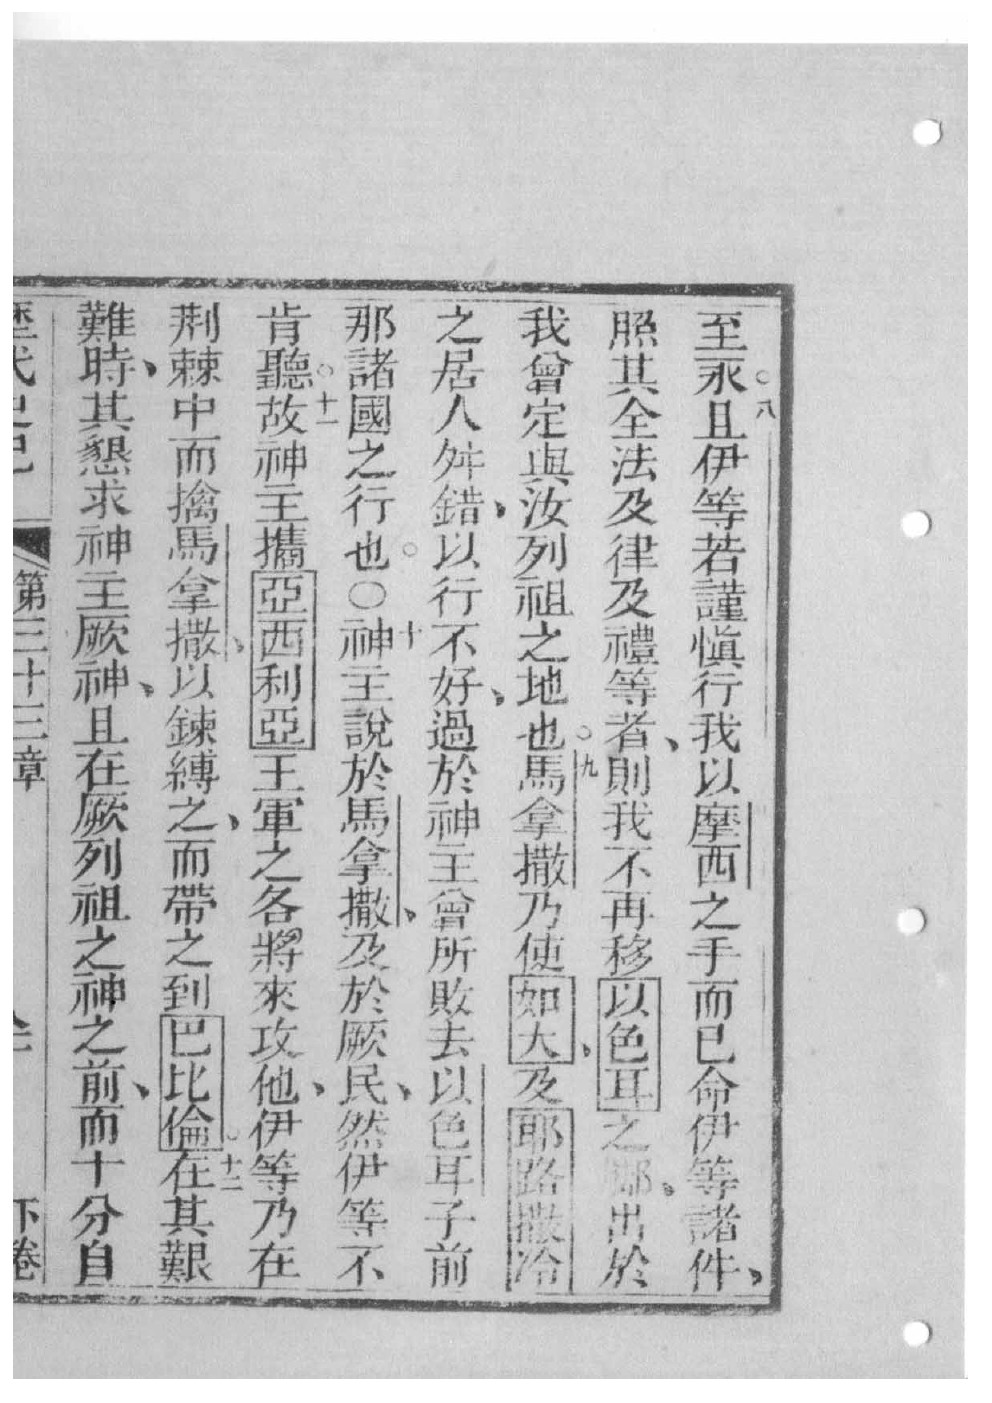 至永○八且伊等若謹愼行我以摩西之手而已命伊等諸件、
照其全法及律及禮等者、則我不再移以色耳之鄉。出於
我曾定與汝列祖之地也○九馬拿撒乃使如大、及耶路撒冷
之居人舛錯、以行不好、過於神主曾所敗去以色耳子前
那諸國之行也○〇十神主說於馬拿撒、及於厥民、然伊等不
肯聽○十一故神主攜亞西利亞王軍之各將來攻他、伊等乃在
荆棘中而擒馬拿撒、以鍊縛之、而帶之到巴比倫○十二在其艱
難時、其懇求神主厥神、且在厥列祖之神之前、而十分自
歷代史記 第三十三章 下卷